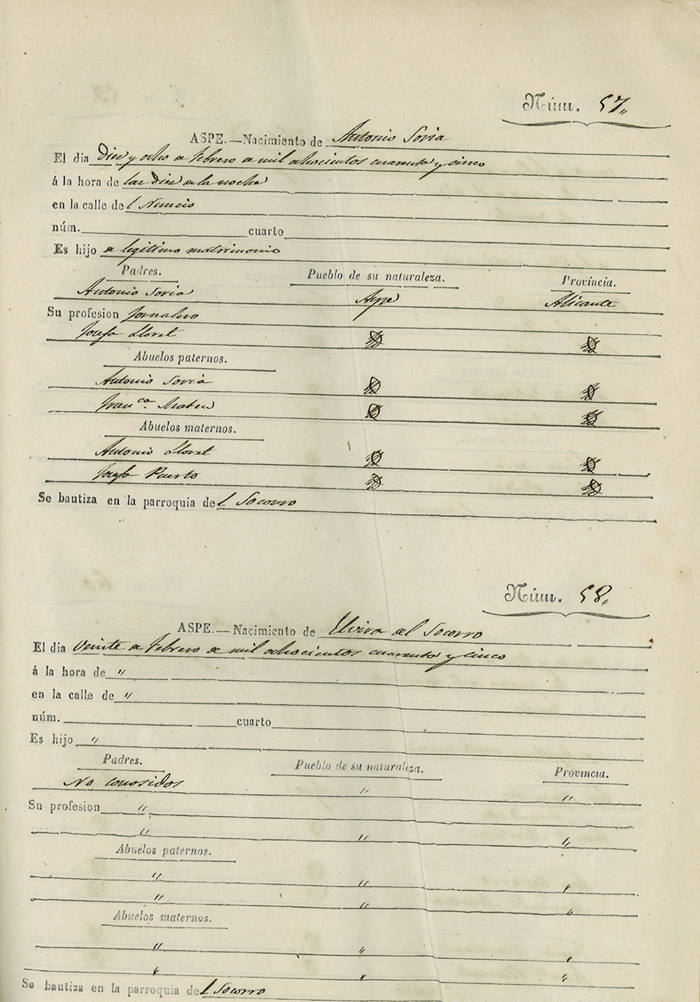 Núm. 57,,
ASPE.—Nacimiento de Antonio Soria
El dia Diez y ocho de febrero de mil ochocientos cuarenta y cinco
á la hora de las diez de la noche
en la calle del Nuncio
núm. cuarto
Es hijo de legitimo matrimonio
Padres. Pueblo de su naturaleza. Provincia.
Antonio Soria Aspe Alicante
Su profesion Jornalero
Josefa Lloret
Abuelos paternos.
Antonio Soria
Franca. Mateu
Abuelos maternos.
Antonio Lloret
Josefa Puerto
Se bautiza en la parroquia del Socorro
Núm. 58,,
ASPE.—Nacimiento de Elvira del Socorro
El dia Veinte de febrero de mil ochocientos cuarenta y cinco
á la hora de "
en la calle de "
núm. cuarto
Es hijo "
Padres. Pueblo de su naturaleza. Provincia.
No conosidos " "
Su profesion "
" " "
Abuelos paternos.
" " "
" " "
Abuelos maternos.
" " "
" " "
Se bautiza en la parroquia del Socorro